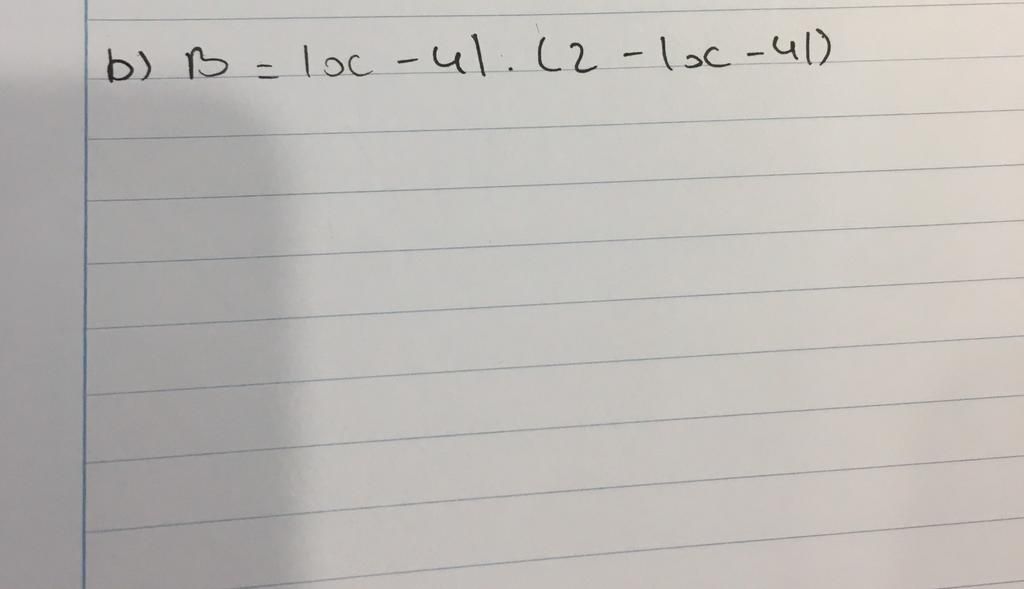 b) B = |x - 4| . (2 - |x - 4|)